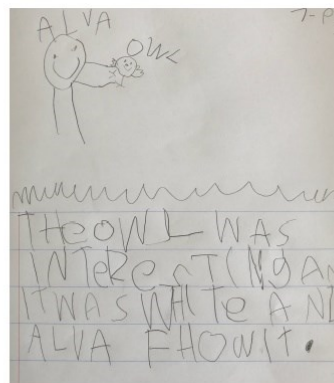 ALVA
OWL
7-P
THE OWL WAS
INTERESTING AN
IT WAS WHITE AND
ALVA FHOWIT.